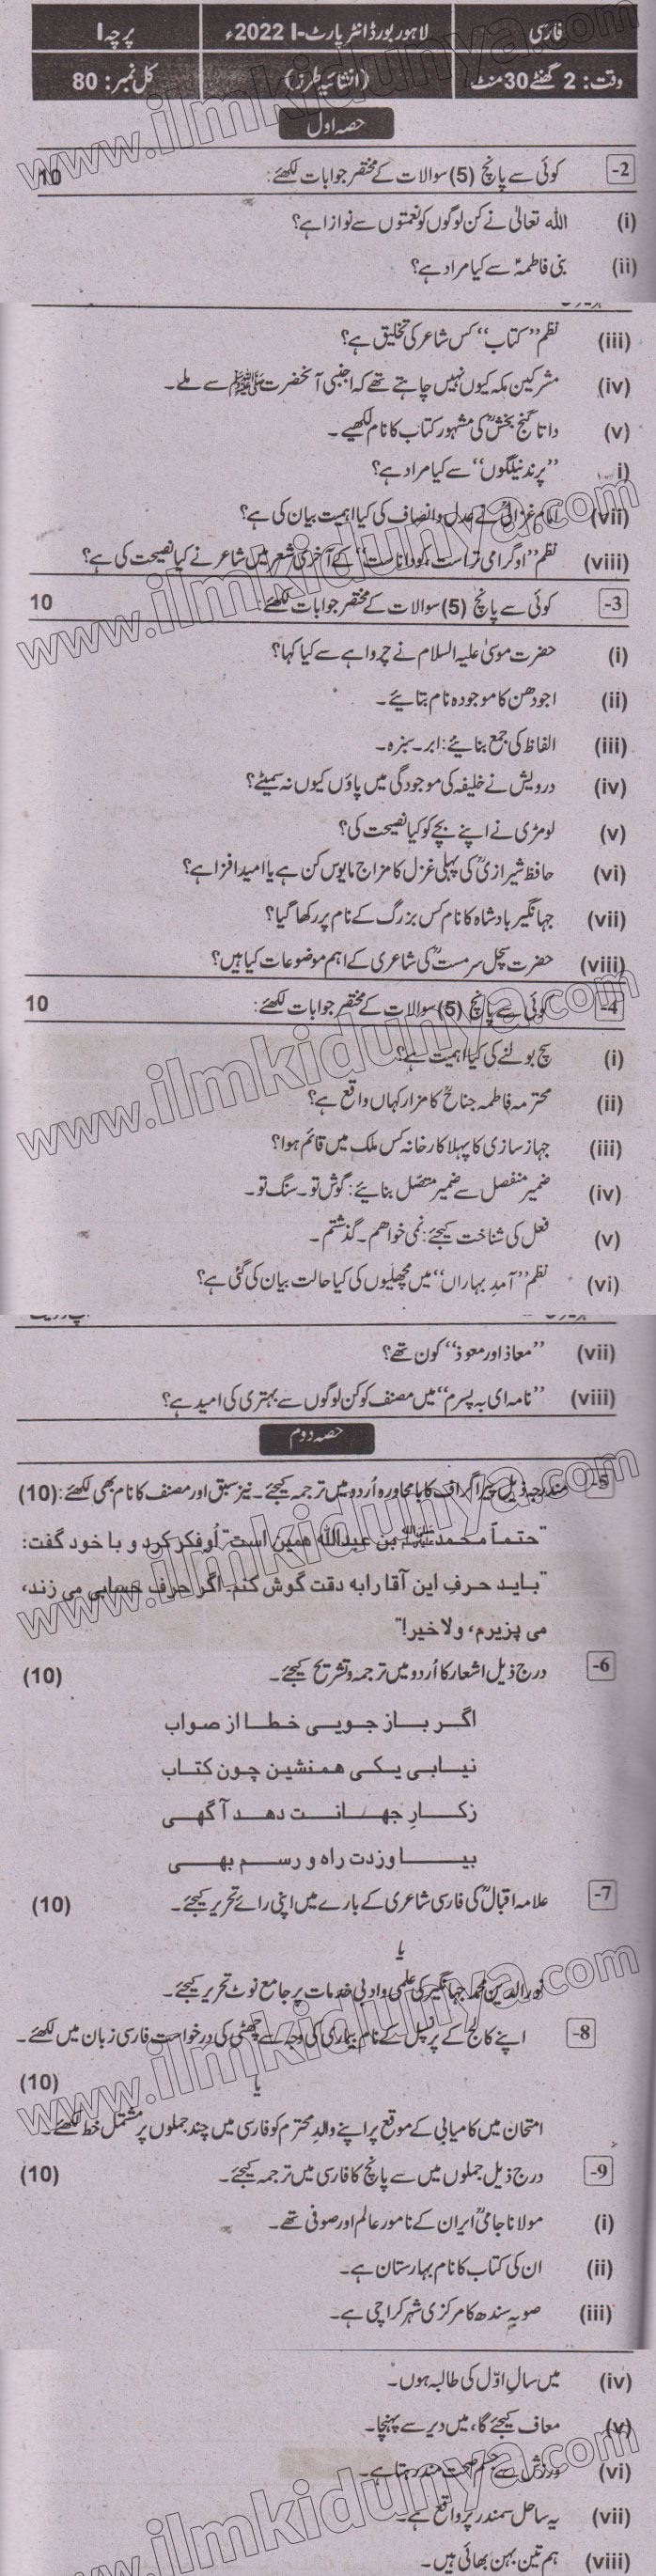 فارسی لاہور بورڈ انٹر پارٹ-I 2022ء پرچہ I
وقت: 2 گھنٹے 30 منٹ (انشائیہ طرز) کل نمبر: 80
حصہ اول
-2 کوئی سے پانچ (5) سوالات کے مختصر جوابات لکھئے: 10
(i) اللہ تعالیٰ نے کن لوگوں کو نعمتوں سے نوازا ہے؟
(ii) بنی فاطمہؑ سے کیا مراد ہے؟
(iii) نظم ’’کتاب‘‘ کس شاعر کی تخلیق ہے؟
(iv) مشرکین مکہ کیوں نہیں چاہتے تھے کہ اجنبی آنحضرت ﷺ سے ملے۔
(v) داتا گنج بخشؒ کی مشہور کتاب کا نام لکھیے۔
i) ’’پرند نیلگوں‘‘ سے کیا مراد ہے؟
(vii) امام غزالیؒ نے عدل و انصاف کی کیا اہمیت بیان کی ہے؟
(viii) نظم ’’او گرامی تر است کو دانا ست‘‘ کے آخری شعر میں شاعر نے کیا نصیحت کی ہے؟
-3 کوئی سے پانچ (5) سوالات کے مختصر جوابات لکھئے: 10
(i) حضرت موسیٰ علیہ السلام نے چرواہے سے کیا کہا؟
(ii) اجودھن کا موجودہ نام بتائیے۔
(iii) الفاظ کی جمع بنائیے: ابر۔ سبزہ۔
(iv) درویش نے خلیفہ کی موجودگی میں پاؤں کیوں نہ سمیٹے؟
(v) لومڑی نے اپنے بچے کو کیا نصیحت کی؟
(vi) حافظ شیرازیؒ کی پہلی غزل کا مزاج مایوس کن ہے یا امید افزا ہے؟
(vii) جہانگیر بادشاہ کا نام کس بزرگ کے نام پر رکھا گیا؟
(viii) حضرت سچل سرمستؒ کی شاعری کے اہم موضوعات کیا ہیں؟
-4 کوئی سے پانچ (5) سوالات کے مختصر جوابات لکھئے: 10
(i) سچ بولنے کی کیا اہمیت ہے؟
(ii) محترمہ فاطمہ جناحؒ کا مزار کہاں واقع ہے؟
(iii) جہاز سازی کا پہلا کارخانہ کس ملک میں قائم ہوا؟
(iv) ضمیر منفصل سے ضمیر متصل بنائیے: گوش تو۔ سنگ تو۔
(v) فعل کی شناخت کیجئے: نمی خواهم۔ گذشتم۔
(vi) نظم ’’آمدِ بہاراں‘‘ میں مچھلیوں کی کیا حالت بیان کی گئی ہے؟
(vii) ’’معاذ اور معوذ‘‘ کون تھے؟
(viii) ’’نامه ای به پسرم‘‘ میں مصنف کو کن لوگوں سے بہتری کی امید ہے؟
حصہ دوم
-5 مندرجہ ذیل پیراگراف کا بامحاورہ اُردو میں ترجمہ کیجئے۔ نیز سبق اور مصنف کا نام بھی لکھئے: (10)
"حتماً محمد ﷺ بن عبداللہ همین است" اُو فکر کرد و با خود گفت:
"باید حرفِ این آقا رابه دقت گوش کنم۔ اگر حرف حسابی می زند،
می پزیرم، ولا خیر!"
-6 درج ذیل اشعار کا اُردو میں ترجمہ و تشریح کیجئے۔ (10)
اگر باز جویی خطا از صواب
نیابی یکی همنشین چون کتاب
زکارِ جهانت دهد آگهی
بیاوزدت راه و رسم بهی
-7 علامہ اقبالؒ کی فارسی شاعری کے بارے میں اپنی رائے تحریر کیجئے۔ (10)
یا
نور الدین محمد جہانگیر کی علمی و ادبی خدمات پر جامع نوٹ تحریر کیجئے۔
-8 اپنے کالج کے پرنسپل کے نام بیماری کی وجہ سے چھٹی کی درخواست فارسی زبان میں لکھئے۔
یا (10)
امتحان میں کامیابی کے موقع پر اپنے والد محترم کو فارسی میں چند جملوں پر مشتمل خط لکھئے۔
-9 درج ذیل جملوں میں سے پانچ کا فارسی میں ترجمہ کیجئے۔ (10)
(i) مولانا جامیؒ ایران کے نامور عالم اور صوفی تھے۔
(ii) ان کی کتاب کا نام بہارستان ہے۔
(iii) صوبہ سندھ کا مرکزی شہر کراچی ہے۔
(iv) میں سالِ اوّل کی طالبہ ہوں۔
(v) معاف کیجئے گا، میں دیر سے پہنچا۔
(vi) ورزش سے جسم صحت مند رہتا ہے۔
(vii) یہ ساحل سمندر پر واقع ہے۔
(viii) ہم تین بہن بھائی ہیں۔
www.ilmkidunya.com
www.ilmkidunya.com
www.ilmkidunya.com
www.ilmkidunya.com
www.ilmkidunya.com
www.ilmkidunya.com